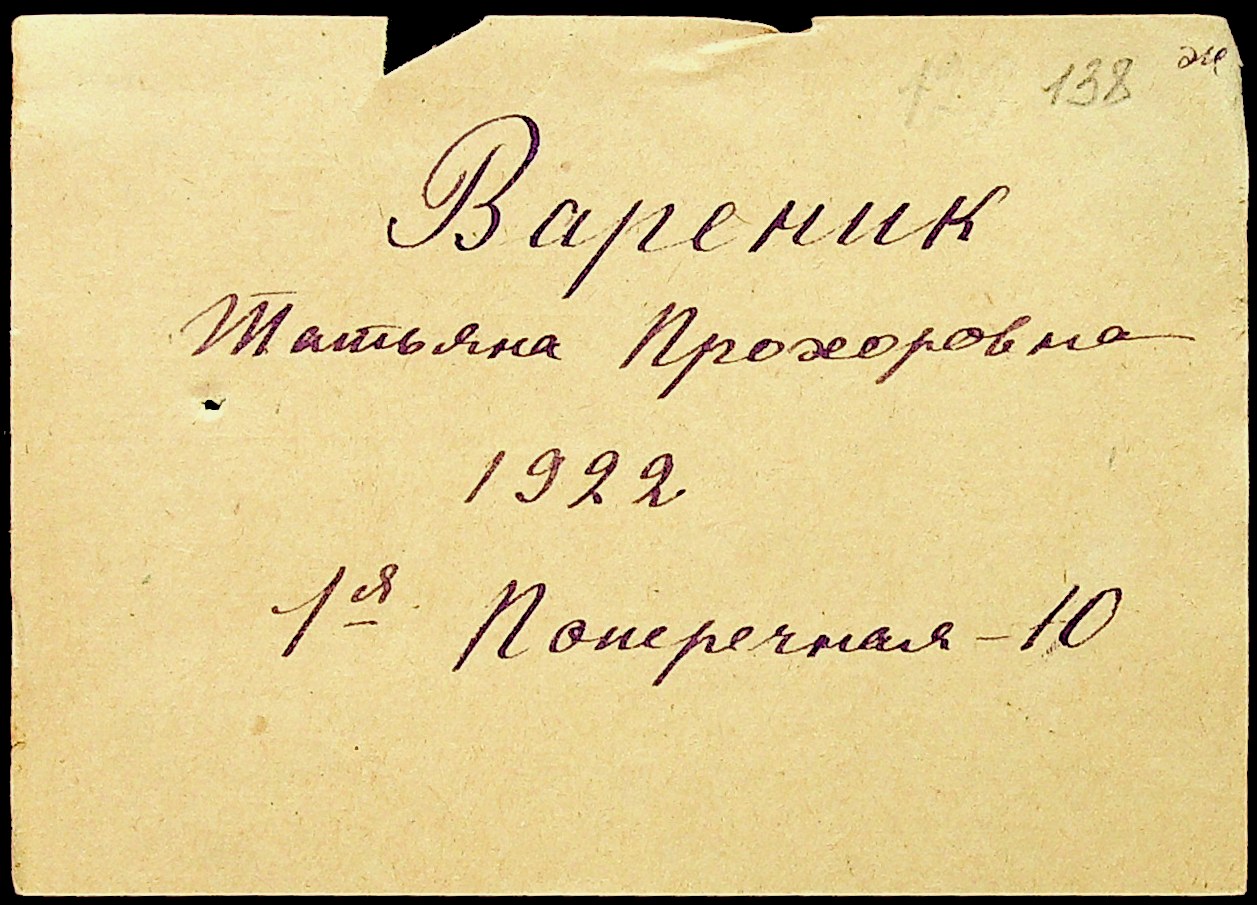 138 эк
Вареник
Татьяна Прохоровна
1922
1я Поперечная - 10